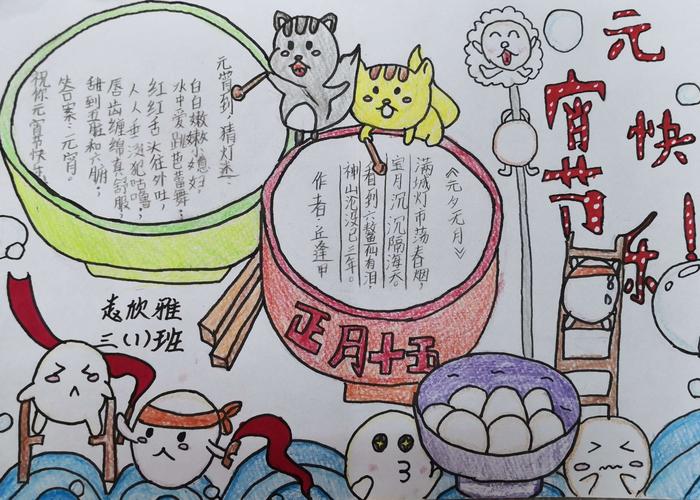 元宵节快乐!
元宵到,猜灯迷:
白白嫩嫩媳妇,
水中爱跳芭蕾舞;
红红舌头往外吐,
人人垂涎犯咕噜;
唇齿缠绵真舒服,
甜到五脏和六腑;
答案:元宵。
祝你元宵节快乐。
《元夕无月》
满城灯市荡春烟,
宝月沉沉隔海天。
看到六鳌仙有泪,
神山沦没已三年。
作者:丘逢甲
正月十五
欣雅
三(1)班